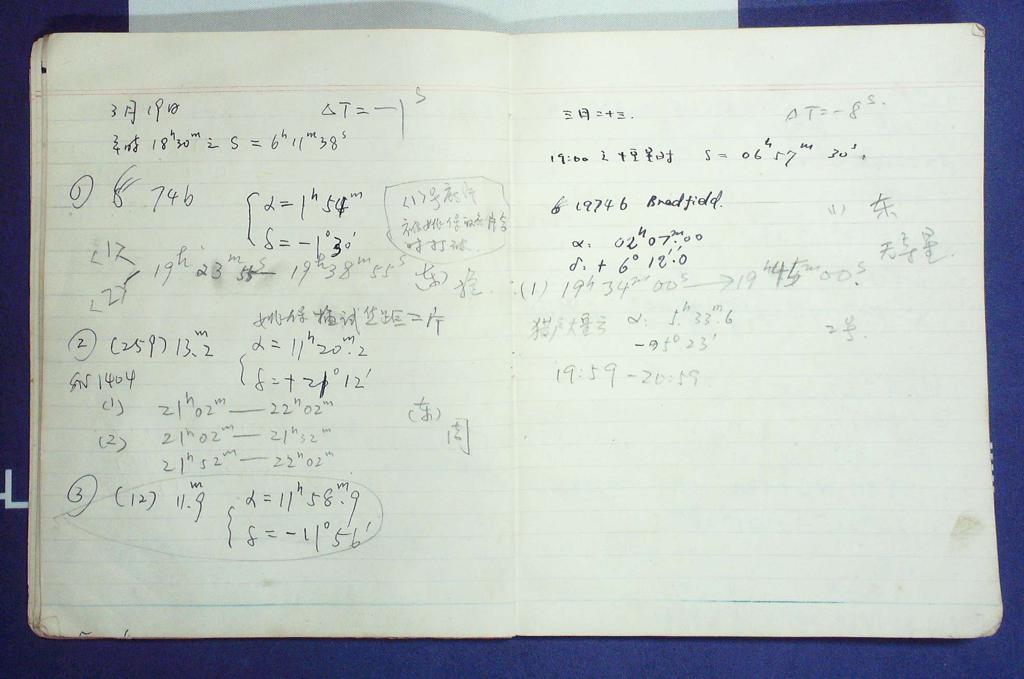 3月19日 ΔT=-1ˢ
18ʰ30ᵐ之 S=6ʰ11ᵐ38ˢ
① 74b { α=1ʰ54ᵐ
δ=-1°30′
(1)号
时打破
(1) 19ʰ23ᵐ55ˢ — 19ʰ38ᵐ55ˢ (东)
(2)
姚保 试 距二片
② (259) 13ᵐ.2 { α=11ʰ20ᵐ.2
SN 1404 δ=+21°12′
(1) 21ʰ02ᵐ — 22ʰ02ᵐ (东)
(2) 21ʰ02ᵐ — 21ʰ32ᵐ 周
21ʰ52ᵐ — 22ʰ02ᵐ
③ (12) 11ᵐ.9 { α=11ʰ58ᵐ.9
δ=-11°56′
三月二十三. ΔT=-8ˢ.
19:00之恒星时 S=06ʰ57ᵐ30ˢ.
1974b Bradfield. (1) 东
α: 02ʰ07ᵐ.00
δ: +6°12′.0 无导星.
(1) 19ʰ34ᵐ00ˢ → 19ʰ45ᵐ00ˢ.
猎户大星云 α: 5ʰ33ᵐ.6 2号.
-05°23′
19:59 - 20:59